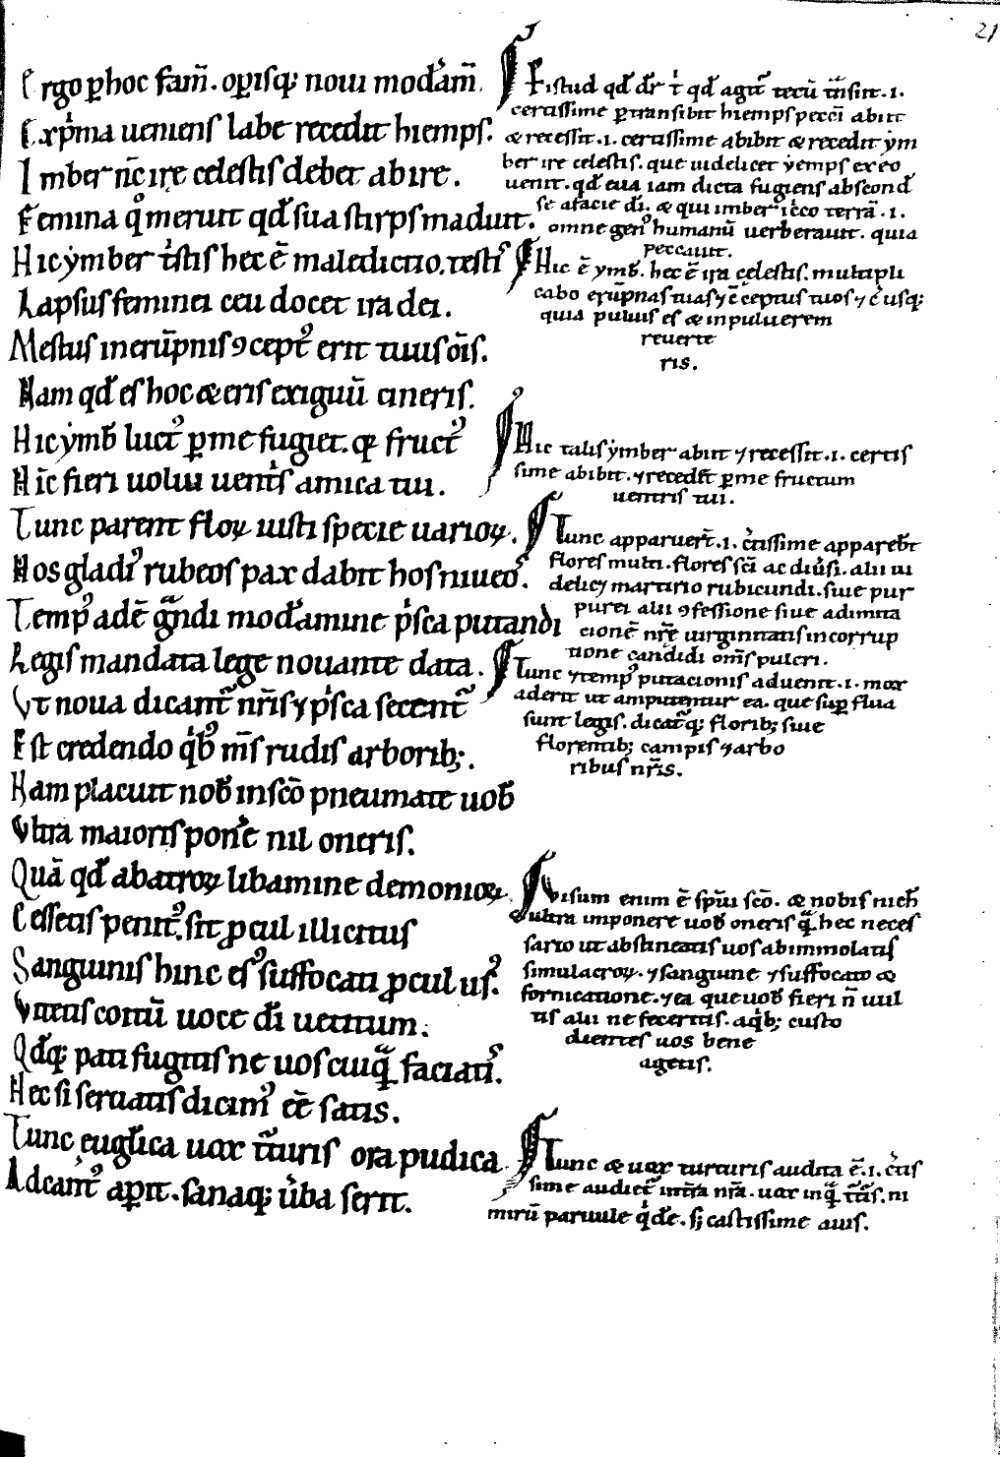 21
Ergo ꝑ hoc fam̄. opisq; noui mod̄am̄.
Exp̄ma ueniens labe recedit hiemps.
Imber nc̄ ire celestis debet abire.
Femina q̊ meruit qd̄ sua stirps maduit.
Hic ẏmber tⁱstis hec ē maledictio. testꝰ
Lapsus feminei ceu docet ira dei.
Mestus in erūpnis ꝯceptꝰ erit tuus om̄s.
Nam qd̄ es hoc & eris exiguū cineris.
Hic ẏmb̄ luctꝰ ꝑ me fugiet. fructꝰ
Hic̄ fieri uolui uentⁱs amica tui.
Tunc parent floꝝ iusti specie uarioꝝ.
Nos gladiꝰ rubeos pax dabit hos niueos.
Tempꝰ adē gͣndi mod̄amine pⁱsca putandi
Legis mandata lege nouante data.
Vt noua dicant᷑ nr̄is ⁊ pⁱsca secent᷑
Est credendo qⁱbꝰ m̄s rudis arborib;.
Nam placuit nob̄ in sc̄o pneumate uob̄
Vltra maioris pon̄e nil oneris.
Quā qd̄ ab atroꝝ libamine demonioꝝ
Cessetis penitꝰ. sit ꝓcul illicitus
Sanguinis hinc esꝰ suffocati ꝓcul usꝰ.
Vitetis coitū uoce d̄i uetitum.
Qd̄q; pati fugitis ne uos cuiqͣ faciatꝭ.
Hec si seruatis dicimꝰ ee̅ satis.
Tunc euglica uox t̄turis ora pudica
Adcantꝰ aꝑit. sanaq; ūba serit.
Istud qd̄ dr̄ tⁱ qd̄ agit᷑ tecū t̄nsiit .i.
certissime ꝑtransibit hiemps pecci̅ abiit
& recessit .i. certissime abibit & recedit ẏm
ber ire celestis. que uidelicet ẏemps ex eo
uenit. qd̄ eua iam dicta fugiens abscond̄
se a facie d̄i. & qui imber icco terrā .i.
omne genꝰ humanū uerberauit. quia
peccauit.
Hic ē ymb̄. hec ē ira celestis. multipli
cabo erūpnas tuas ⁊ c̄ceptus tuos ⁊ c̄ usq;
quia puluis es & in puluerem
reuerte
ris.
Hic talis ẏmber abiit ⁊ recessit .i. certis
sime abibit. ⁊ recedet ꝑ me fructum
uentris tui.
Tunc apparuert̄ .i. c̄tissime appareb̄t
flores multi. flores sci̅ ac diuⁱsi. alii ui
delicꝫ martirio rubicundi. siue pur
purei alii ꝯfessione siue adimita
cionē nr̄e uirginitatis incorrup
tione candidi om̄s pulcri.
Tunc ⁊ tempꝰ putacionis aduenit .i. mox
aderit ut amputentur ea. que suꝑ flua
sunt legis. dicat᷑q; florib; siue
florentib; campis ⁊ arbo
ribus nr̄is.
Visum enim ē spūi sc̄o. & nobis nich̄
ultra imponere uob̄ oneris qͣ hec neces
sario ut abstineatis uos ab immolatis
simulacroꝝ. ⁊ sanguine ⁊ suffocato &
fornicatione. ⁊ ea que uob̄ fieri n̄ uul
tis alii ne feceritis. a qⁱb; custo
dientes uos bene
agetis.
Tunc & uox turturis audita ē .i. c̄tis
sime audiet᷑ int̄ra nr̄a. uox inqͣ t̄t̄is. ni
mirū paruule qⁱde. s; castissime auis.